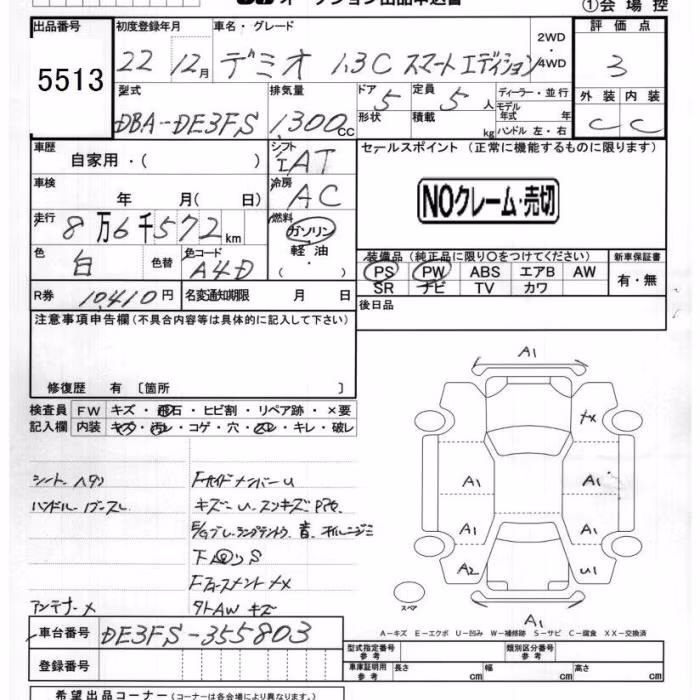 オークション出品申込書
①会場控
出品番号
5513
初度登録年月
22 12月
車名・グレード
デミオ 1.3C スマートエディション
2WD
4WD
評価点
3
型式
DBA-DE3FS
排気量
1,300cc
ドア 5
形状
定員 5人
積載 kg
ディーラー・並行
モデル年式 年
ハンドル 左・右
外装 内装
C C
車歴
自家用・( )
シフト
IAT
車検
年 月( 日)
冷房
AC
走行
8万6千572km
燃料
ガソリン
軽油
色
白
色替
色コード
A4D
R券 10410円
名変通知期限 月 日
セールスポイント (正常に機能するものに限ります)
NOクレーム・売切
装備品 (純正品に限り○をつけてください)
PS PW ABS エアB AW
SR ナビ TV カワ
新車保証書
有・無
後日品
注意事項申告欄(不具合内容等は具体的に記入して下さい)
修復歴 有 〔箇所 〕
検査員記入欄
FW キズ・飛石・ヒビ割・リペア跡・×要
内装 キズ・汚レ・コゲ・穴・スレ・キレ・破レ
シート ヘタリ
アンテナー✕
FサイドメンバーU
キズーU
タトAWキズ
A1
A1 A1
A1 A1
A2 U1
A1
スペア
A−キズ E−エクボ U−凹み W−補修跡 S−サビ C−腐食 XX−交換済
車台番号 DE3FS-355803
登録番号
型式指定番号 参考
類別区分番号 参考
車庫証明用 参考
長さ cm 幅 cm 高さ cm
希望出品コーナー (コーナーは各会場により異なります)